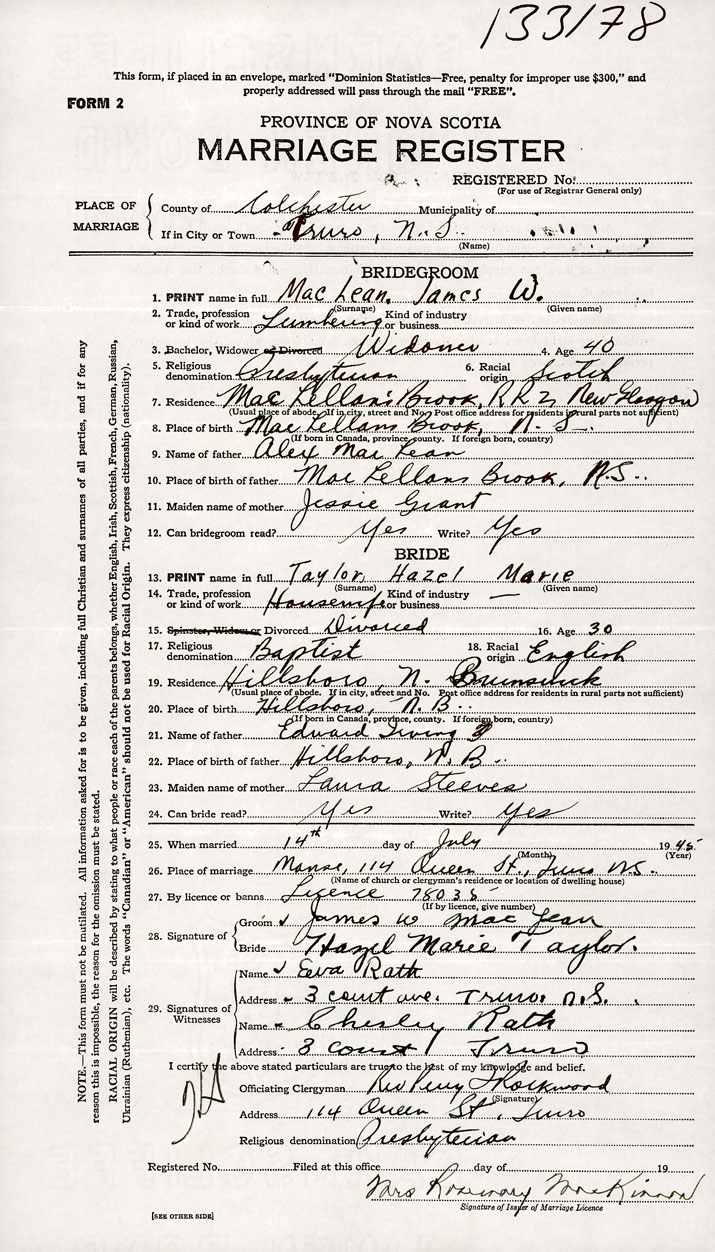 133178
This form, if placed in an envelope, marked "Dominion Statistics—Free, penalty for improper use $300," and
properly addressed will pass through the mail "FREE".
FORM 2
PROVINCE OF NOVA SCOTIA
MARRIAGE REGISTER
REGISTERED No.
(For use of Registrar General only)
PLACE OF MARRIAGE
County of Colchester Municipality of
If in City or Town Truro, N.S.
(Name)
BRIDEGROOM
1. PRINT name in full MacLean, James W.
(Surname) (Given name)
2. Trade, profession or kind of work Lumbering Kind of industry or business
3. Bachelor, Widower or Divorced Widower 4. Age 40
5. Religious denomination Presbyterian 6. Racial origin Scotch
7. Residence MacLellans Brook, RR2 New Glasgow
(Usual place of abode. If in city, street and No. Post office address for residents in rural parts not sufficient)
8. Place of birth MacLellans Brook, N.S.
(If born in Canada, province, county. If foreign born, country)
9. Name of father Alex MacLean
10. Place of birth of father MacLellans Brook, N.S.
11. Maiden name of mother Jessie Grant
12. Can bridegroom read? Yes Write? Yes
BRIDE
13. PRINT name in full Taylor, Hazel Marie
(Surname) (Given name)
14. Trade, profession or kind of work Housewife Kind of industry or business —
15. Spinster, Widow or Divorced Divorced 16. Age 30
17. Religious denomination Baptist 18. Racial origin English
19. Residence Hillsboro, N. Brunswick
(Usual place of abode. If in city, street and No. Post office address for residents in rural parts not sufficient)
20. Place of birth Hillsboro, N.B.
(If born in Canada, province, county. If foreign born, country)
21. Name of father Edward Irving
22. Place of birth of father Hillsboro, N.B.
23. Maiden name of mother Laura Steeves
24. Can bride read? Yes Write? Yes
25. When married 14th day of July 1945
(Month) (Year)
26. Place of marriage Manse, 114 Queen St., Truro N.S.
(Name of church or clergyman's residence or location of dwelling house)
27. By licence or banns Licence 78035
(If by licence, give number)
28. Signature of
Groom James W MacLean
Bride Hazel Marie Taylor.
29. Signatures of Witnesses
Name Eva Rath
Address 3 court ave. Truro. N.S.
Name Chesley Rath
Address 3 court Truro
I certify the above stated particulars are true to the best of my knowledge and belief.
Officiating Clergyman Rev Perry F Rockwood
(Signature)
Address 114 Queen St, Truro
Religious denomination Presbyterian
Registered No. Filed at this office day of 19
Mrs Rosemary MacKinnon
Signature of Issuer of Marriage Licence
[SEE OTHER SIDE]
NOTE.—This form must not be mutilated. All information asked for is to be given, including full Christian and surnames of all parties, and if for any
reason this is impossible, the reason for the omission must be stated.
RACIAL ORIGIN will be described by stating to what people or race each of the parents belongs, whether English, Irish, Scottish, French, German, Russian,
Ukrainian (Ruthenian), etc. The words "Canadian" or "American" should not be used for Racial Origin. They express citizenship (nationality).